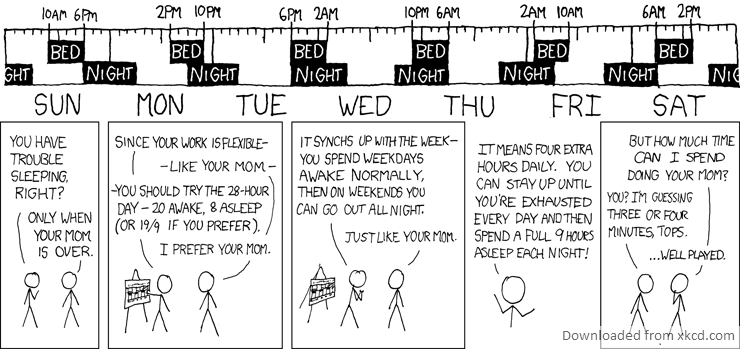 10AM 6PM 2PM 10PM 6PM 2AM 10PM 6AM 2AM 10AM 6AM 2PM
BED BED BED BED BED BED
GHT NIGHT NIGHT NIGHT NIGHT NIGHT NIGHT NI
SUN MON TUE WED THU FRI SAT
YOU HAVE
TROUBLE
SLEEPING,
RIGHT?
ONLY WHEN
YOUR MOM
IS OVER.
SINCE YOUR WORK IS FLEXIBLE-
-LIKE YOUR MOM-
-YOU SHOULD TRY THE 28-HOUR
DAY-20 AWAKE, 8 ASLEEP
(OR 19/9 IF YOU PREFER).
I PREFER YOUR MOM.
IT SYNCHS UP WITH THE WEEK-
YOU SPEND WEEKDAYS
AWAKE NORMALLY,
THEN ON WEEKENDS YOU
CAN GO OUT ALL NIGHT.
JUST LIKE YOUR MOM.
IT MEANS FOUR EXTRA
HOURS DAILY. YOU
CAN STAY UP UNTIL
YOU'RE EXHAUSTED
EVERY DAY AND THEN
SPEND A FULL 9 HOURS
ASLEEP EACH NIGHT!
BUT HOW MUCH TIME
CAN I SPEND
DOING YOUR MOM?
YOU? I'M GUESSING
THREE OR FOUR
MINUTES, TOPS.
...WELL PLAYED.
Downloaded from xkcd.com